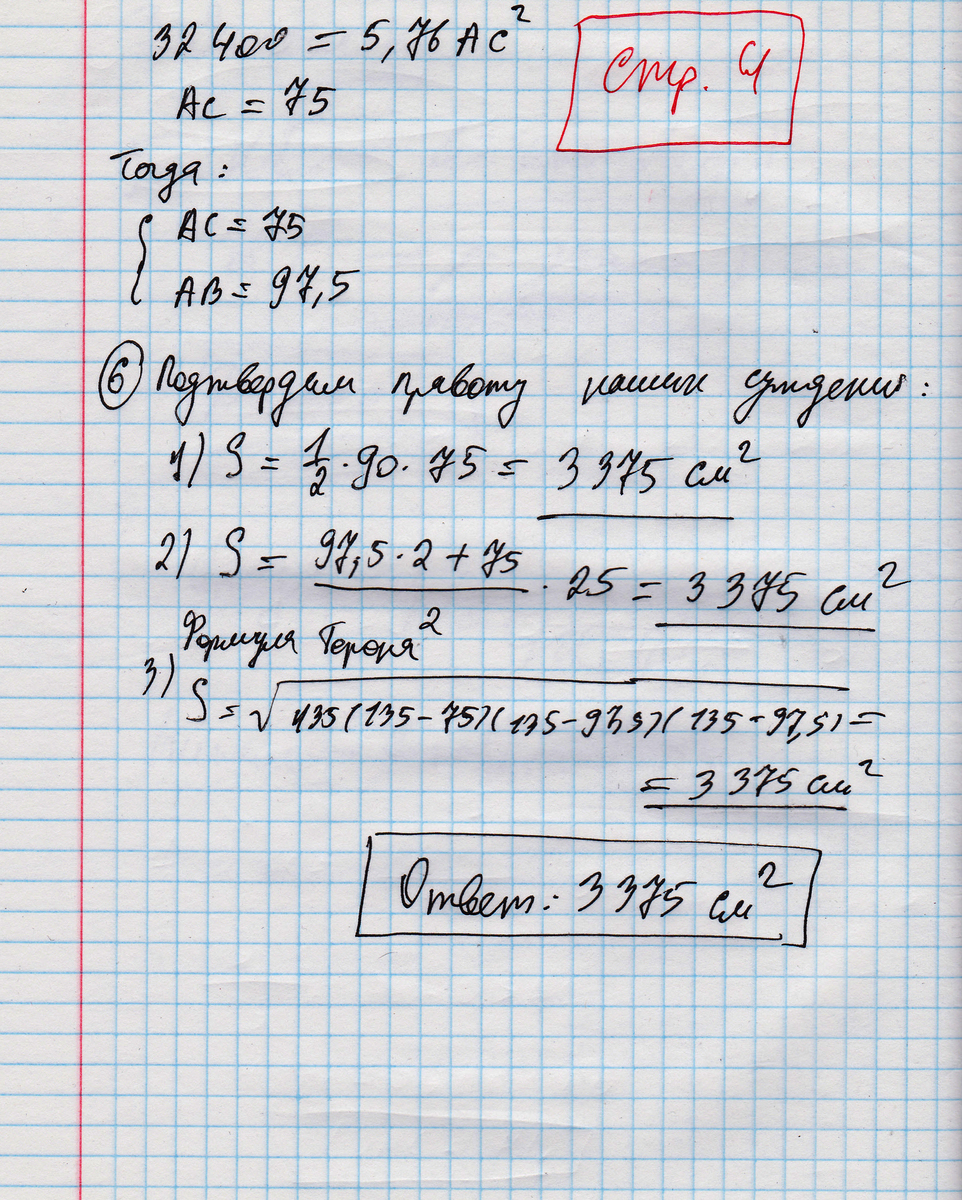 32400 = 5,76 AC²
Стр. 4
AC = 75
Тогда:
{ AC = 75
AB = 97,5
⑥ Подтвердим правоту наших суждений:
1) S = 1/2 · 90 · 75 = 3375 см²
2) S = (97,5 · 2 + 75)/2 · 25 = 3375 см²
Формула Герона
3) S = √(135(135 - 75)(135 - 97,5)(135 - 97,5)) =
= 3375 см²
Ответ: 3375 см²